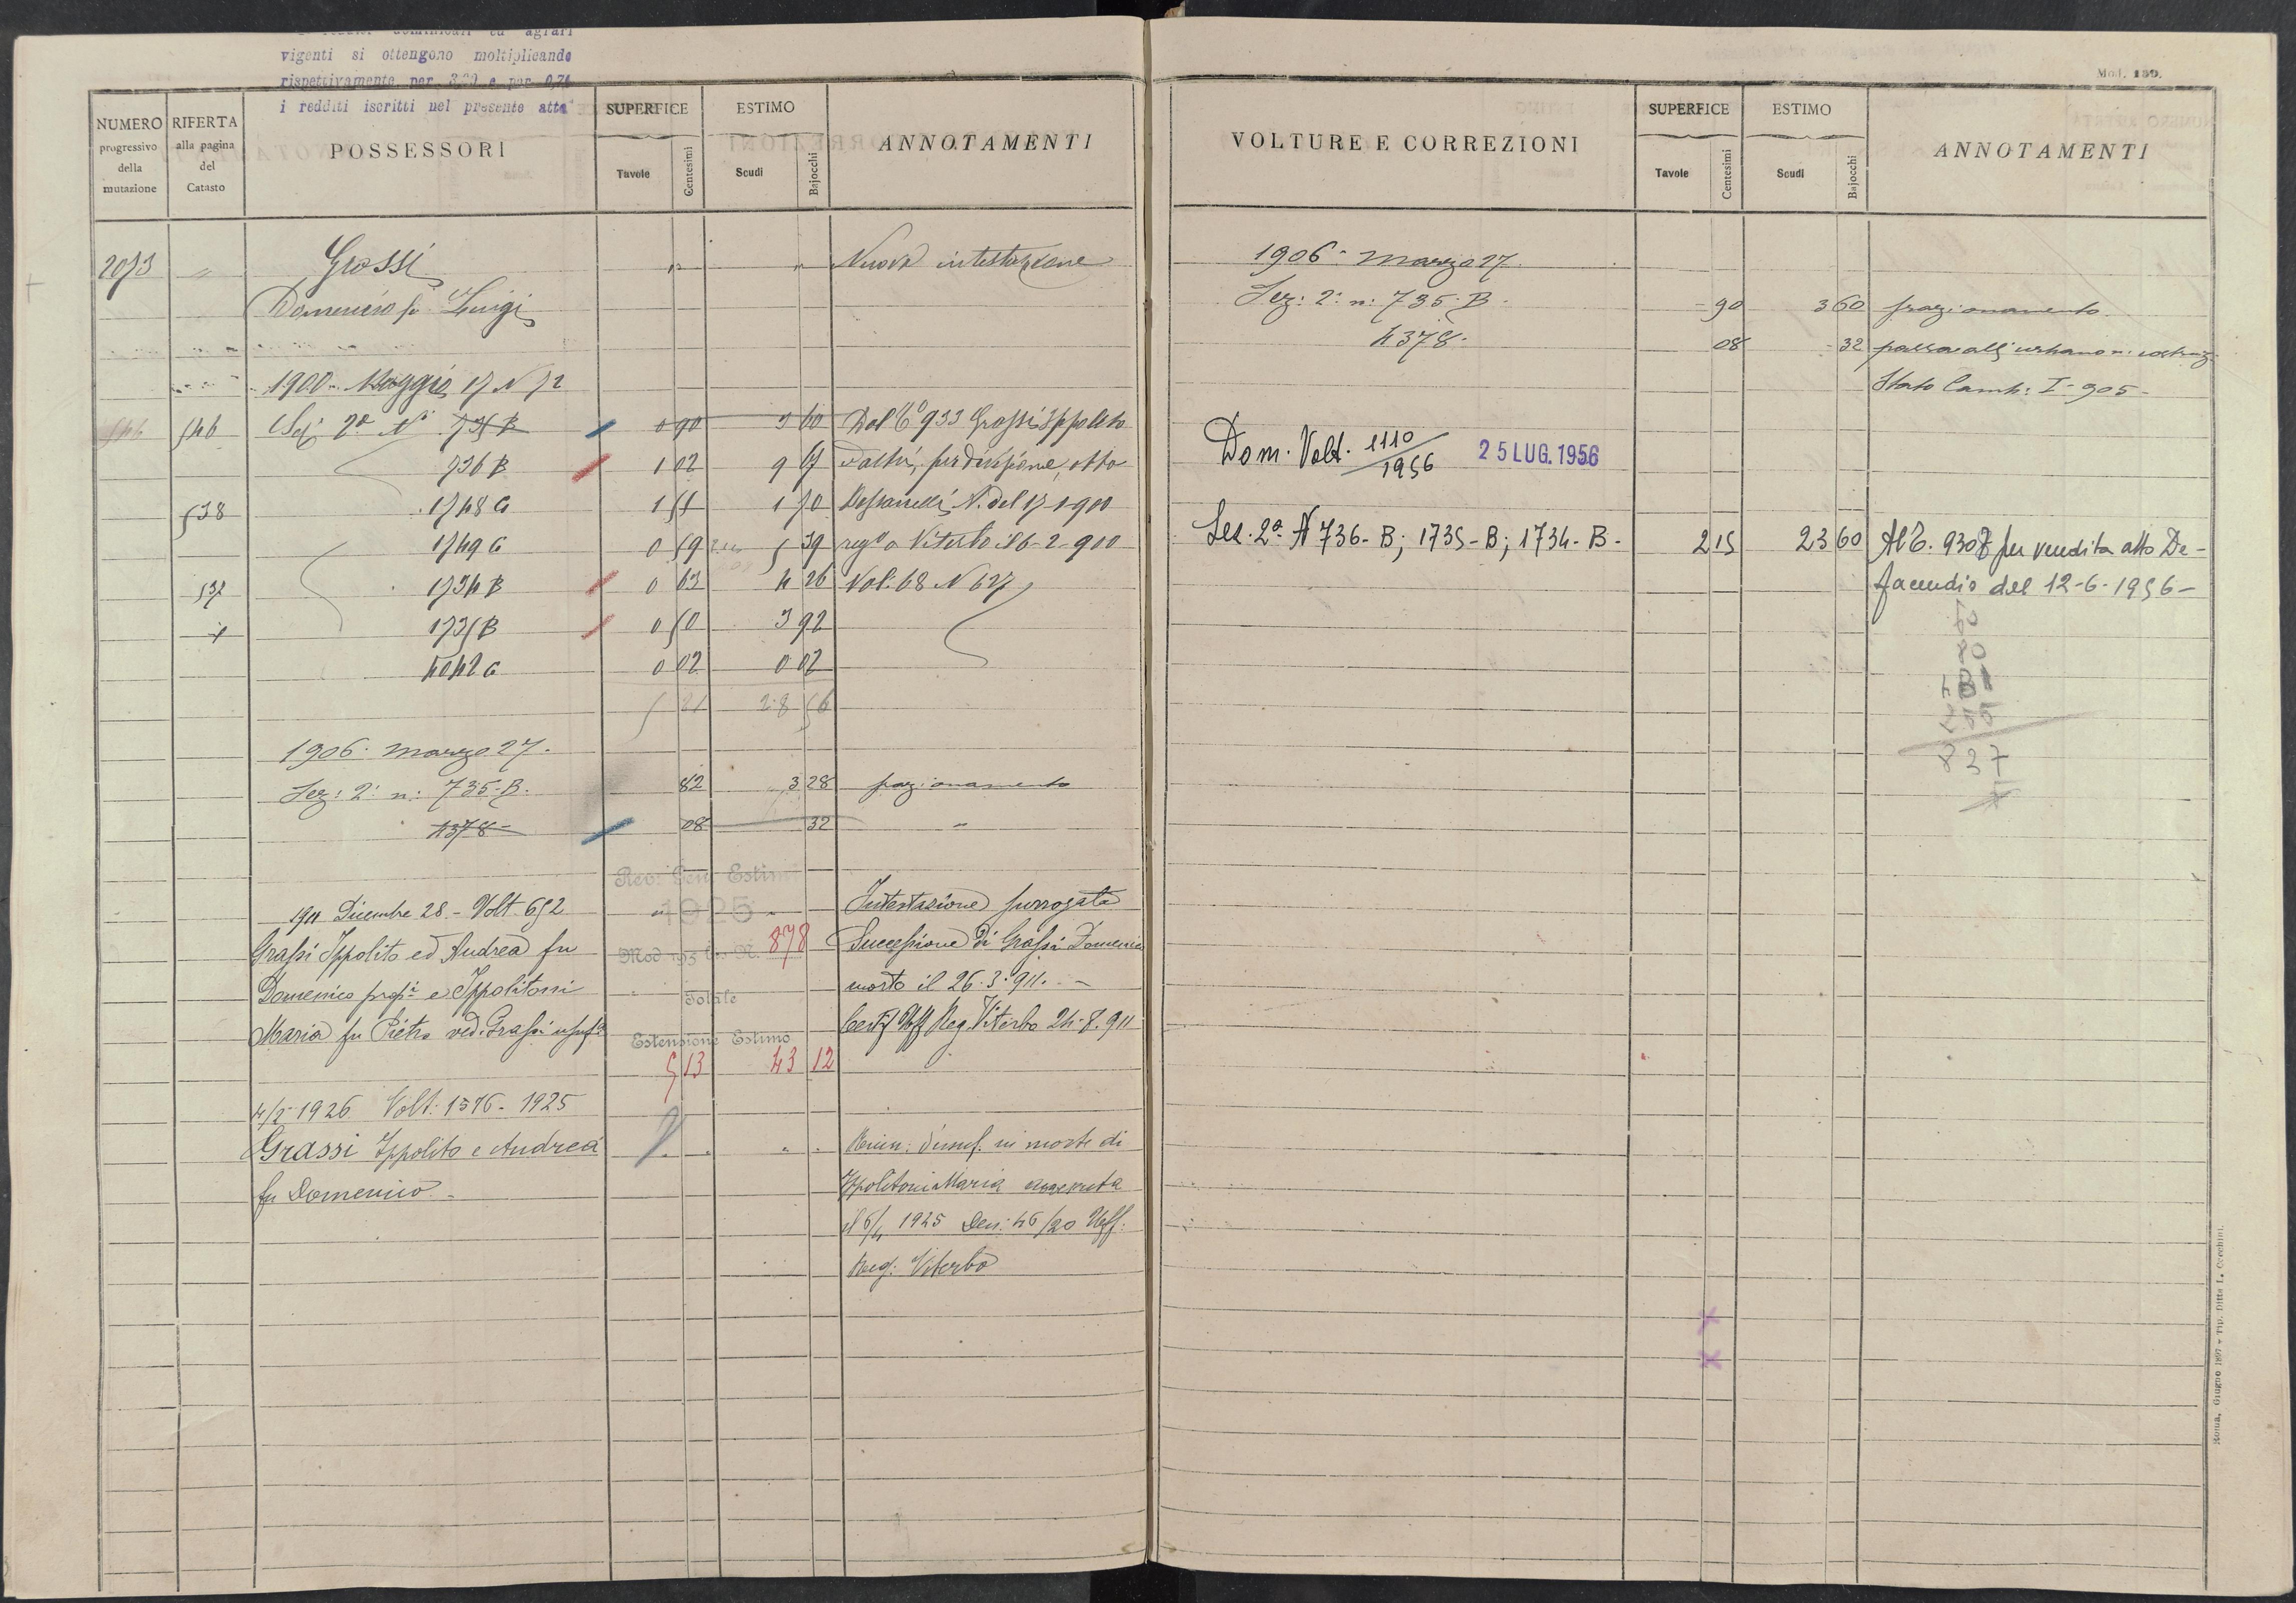 vigenti si ottengono moltiplicando
rispettivamente per 3,20 e per 0,76
i redditi iscritti nel presente atto
NUMERO progressivo della mutazione
RIFERTA alla pagina del Catasto
POSSESSORI
SUPERFICE
Tavole
Centesimi
ESTIMO
Scudi
Bajocchi
ANNOTAMENTI
2073 " Grossi " " Nuova intestazione
Domenico fu Luigi
1900 Maggio 17 N 72
546 Sez 2a No 735 B 0 90 3 60 Dal To 933 Grassi Ippolito
736 B 1 02 9 67
538 1748 G 1 55 1 70
1749 G 0 59 5 39 rego a Viterbo il 6-2-900
537 1734 B 0 63 4 26 Vol. 68 N 627
1735 B 0 50 3 92
4042 G 0 02 0 02
5 21 28 56
1906 marzo 27.
Sez: 2a n: 735-B. 82 3 28 frazionamento
4378 08 32 "
Rev. Gen. Estimi
1925
1911 Dicembre 28 - Volt. 652 Intestazione surrogata
Grassi Ippolito ed Andrea fu Mod. N. 878 Successione di Grassi Domenico
Domenico propi e Ippolitoni morto il 26.3.911. -
Totale
Maria fu Pietro ved. Grassi usufa Certif Uff Reg. Viterbo 24-8.911
Estensione Estimo
5 13 43 12
4/2-1926 Volt: 1576-1925
Grassi Ippolito e Andrea Riun: d'usuf. in morte di
fu Domenico - Ippolitoni Maria avvenuta
1925 Den: 46/20 Uff.
Reg: Viterbo
Mod. 139.
VOLTURE E CORREZIONI
SUPERFICE
Tavole
Centesimi
ESTIMO
Scudi
Bajocchi
ANNOTAMENTI
1906 - marzo 27.
Sez: 2a n: 735-B. - 90 3 60 frazionamento.
4378. 08 - 32 passa all'urbano n:
Stato Camb: I-905-
Dom. Volt. 1110/1956 25 LUG. 1956
Sez. 2a N 736-B; 1735-B; 1734-B- 2 15 23 60 Al T. 9307 per vendita atto De-
facendis del 12-6-1956-
60
80
255
827
Roma, Giugno 1897 - Tip. Ditta L. Cecchini.